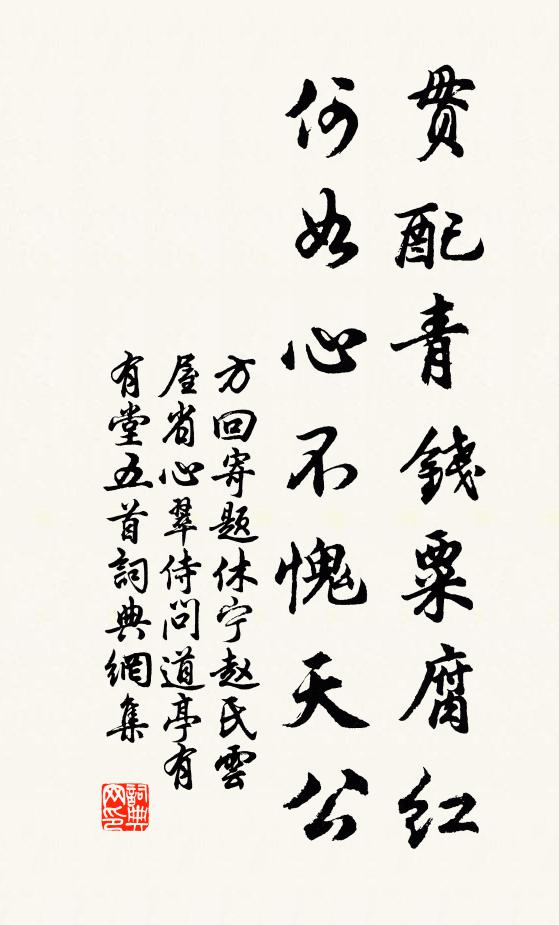 贯配青錢粟腐红
何如心不愧天公
方回寄題休宁赵民雲
屋省心翠侍问道亭有
有堂五首詞典網集
詞典網印